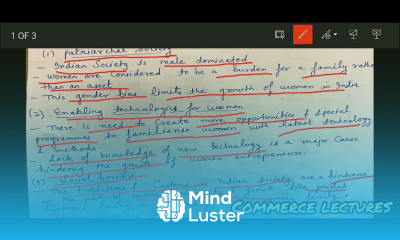 1 OF 3
(1) Patriarchal society
- Indian Society is male dominated
- Women are considered to be a burden for a family rather
than an asset
- This gender bias limits the growth of women in India
(2) Enabling technologies for women
- There is need to create more opportunities & special
programmes to familiarise women with latest technology
methods
- Lack of knowledge of new technology is a major cause
hindering the growth of women entrepreneur.
(3) Social barriers
- The traditions & Customs in Indian Society are a hindrance
Mind
Luster
COMMERCE LECTURES